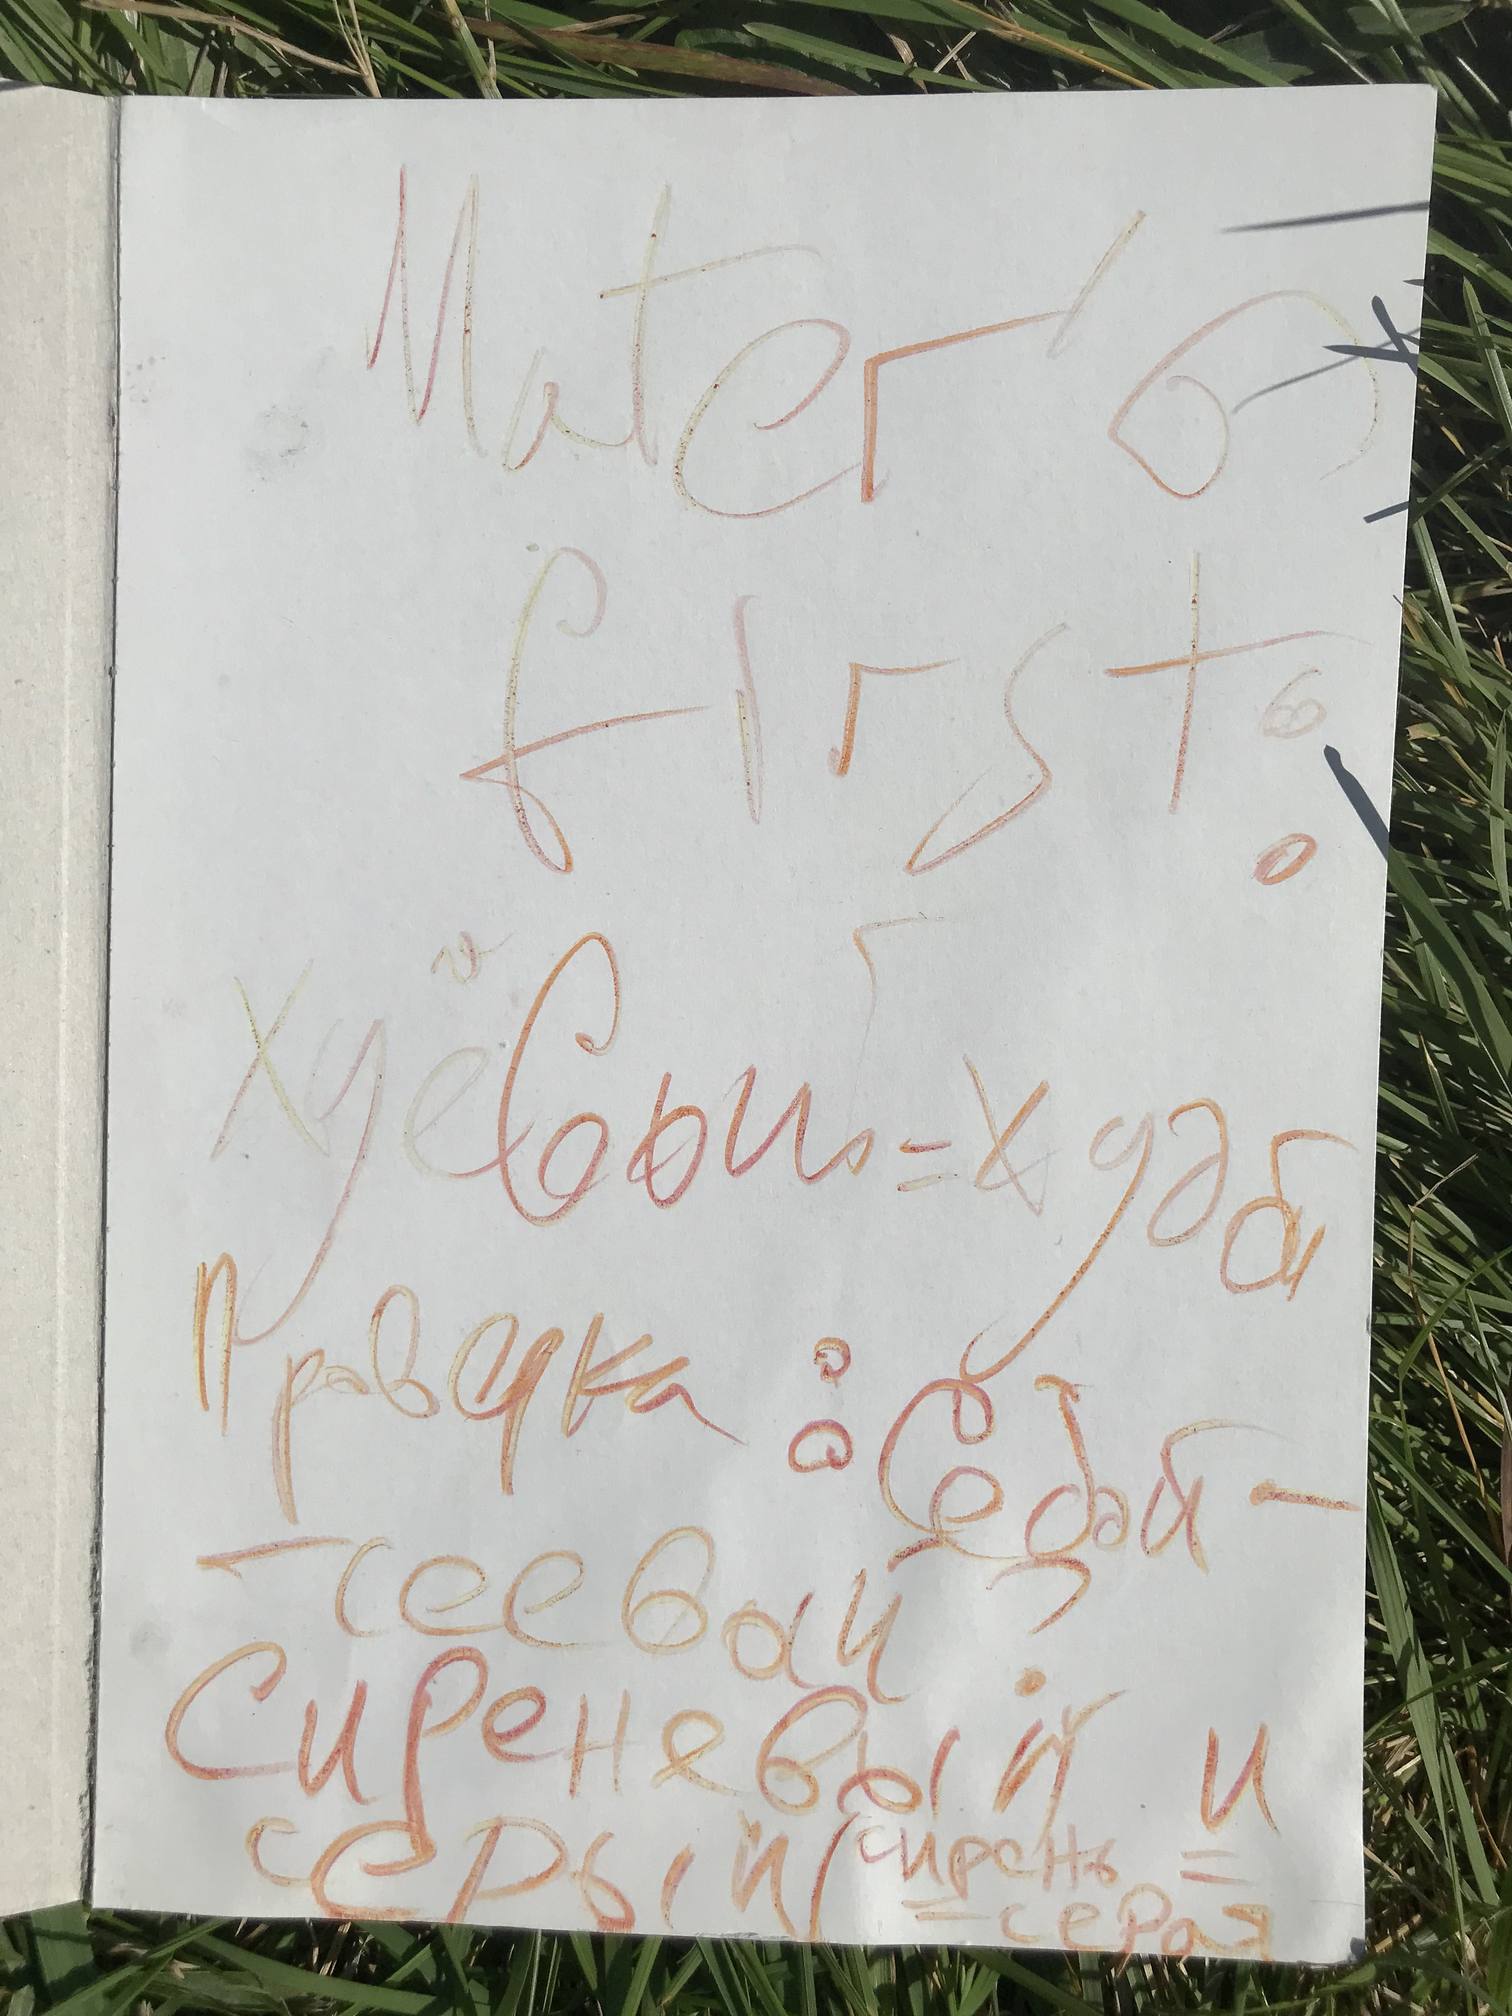 Mater' б
first:
хуёвый=худой
правдка: Седой-
-сеевай?
Сиреневый и
серый (сирень=
=серая